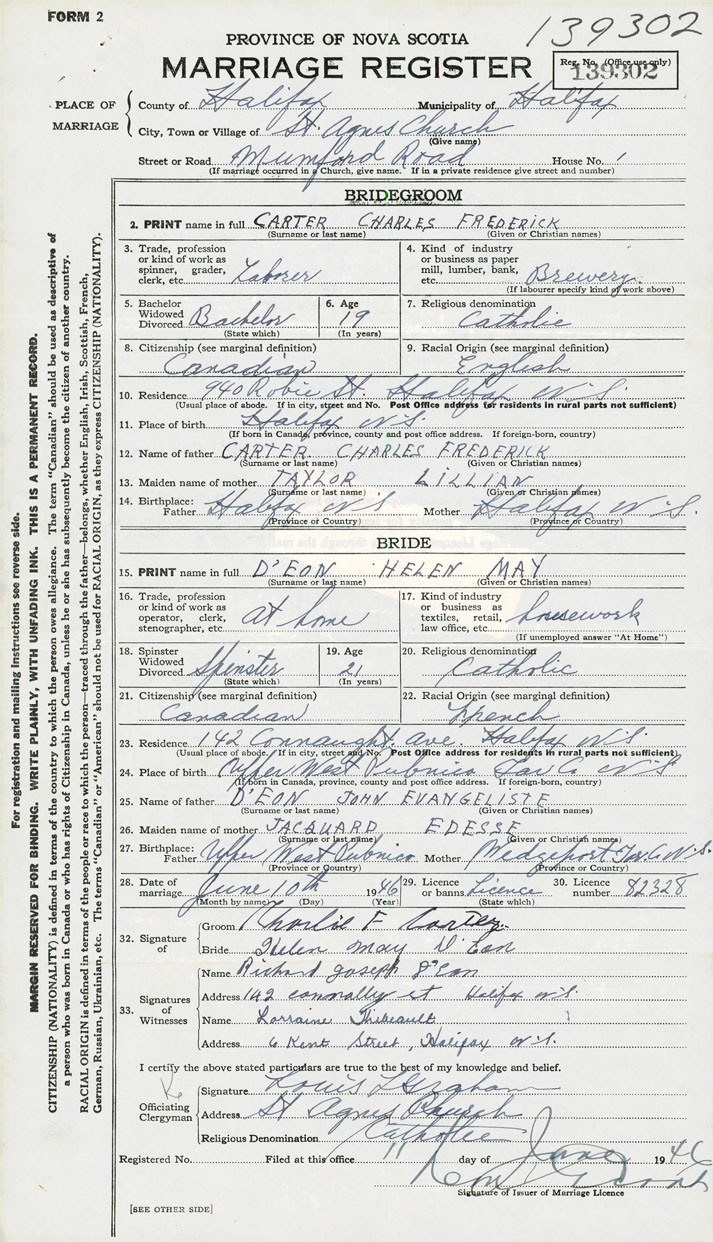 FORM 2
139302
PROVINCE OF NOVA SCOTIA
MARRIAGE REGISTER
Reg. No. (Office use only)
139302
PLACE OF MARRIAGE
County of Halifax Municipality of Halifax
City, Town or Village of St. Agnes Church
(Give name)
Street or Road Mumford Road House No.
(If marriage occurred in a Church, give name. If in a private residence give street and number)
BRIDEGROOM
2. PRINT name in full CARTER CHARLES FREDERICK
(Surname or last name) (Given or Christian names)
3. Trade, profession or kind of work as spinner, grader, clerk, etc. Laborer
4. Kind of industry or business as paper mill, lumber, bank, etc. Brewery
(If labourer specify kind of work above)
5. Bachelor Widowed Divorced Bachelor
(State which)
6. Age 19
(In years)
7. Religious denomination Catholic
8. Citizenship (see marginal definition) Canadian
9. Racial Origin (see marginal definition) English
10. Residence 940 Robie St. Halifax N.S.
(Usual place of abode. If in city, street and No. Post Office address for residents in rural parts not sufficient)
11. Place of birth Halifax N.S.
(If born in Canada, province, county and post office address. If foreign-born, country)
12. Name of father CARTER CHARLES FREDERICK
(Surname or last name) (Given or Christian names)
13. Maiden name of mother TAYLOR LILLIAN
(Surname or last name) (Given or Christian names)
14. Birthplace: Father Halifax N.S. Mother Halifax N.S.
(Province or Country) (Province or Country)
BRIDE
15. PRINT name in full D'EON HELEN MAY
(Surname or last name) (Given or Christian names)
16. Trade, profession or kind of work as operator, clerk, stenographer, etc. at home
17. Kind of industry or business as textiles, retail, law office, etc. housework
(If unemployed answer "At Home")
18. Spinster Widowed Divorced Spinster
(State which)
19. Age 21
(In years)
20. Religious denomination Catholic
21. Citizenship (see marginal definition) Canadian
22. Racial Origin (see marginal definition) French
23. Residence 142 Connaught Ave. Halifax N.S.
(Usual place of abode. If in city, street and No. Post Office address for residents in rural parts not sufficient)
24. Place of birth Upper West Pubnico Yar Co N.S.
(If born in Canada, province, county and post office address. If foreign-born, country)
25. Name of father D'EON JOHN EVANGELISTE
(Surname or last name) (Given or Christian names)
26. Maiden name of mother JACQUARD EDESSE
(Surname or last name) (Given or Christian names)
27. Birthplace: Father Upper West Pubnico Mother Wedgeport Yar. Co N.S.
(Province or Country) (Province or Country)
28. Date of marriage June 10th 1946
(Month by name) (Day) (Year)
29. Licence or banns Licence
(State which)
30. Licence number 82328
32. Signature of
Groom Charlie F Carter
Bride Helen May D'Eon
33. Signatures of Witnesses
Name Richard Joseph D'Eon
Address 142 connolly st Halifax N.S.
Name Lorraine Thibeault
Address 6 Kent Street, Halifax N.S.
I certify the above stated particulars are true to the best of my knowledge and belief.
Officiating Clergyman
Signature Louis L Graham
Address St Agnes Church
Religious Denomination Catholic
Registered No. Filed at this office 11 day of June 1946
Signature of Issuer of Marriage Licence
[SEE OTHER SIDE]
For registration and mailing instructions see reverse side.
MARGIN RESERVED FOR BINDING. WRITE PLAINLY, WITH UNFADING INK. THIS IS A PERMANENT RECORD.
CITIZENSHIP (NATIONALITY) is defined in terms of the country to which the person owes allegiance. The term "Canadian" should be used as descriptive of
a person who was born in Canada or who has rights of Citizenship in Canada, unless he or she has subsequently become the citizen of another country.
RACIAL ORIGIN is defined in terms of the people or race to which the person—traced through the father—belongs, whether English, Irish, Scottish, French,
German, Russian, Ukrainian, etc. The terms "Canadian" or "American" should not be used for RACIAL ORIGIN, as they express CITIZENSHIP (NATIONALITY).